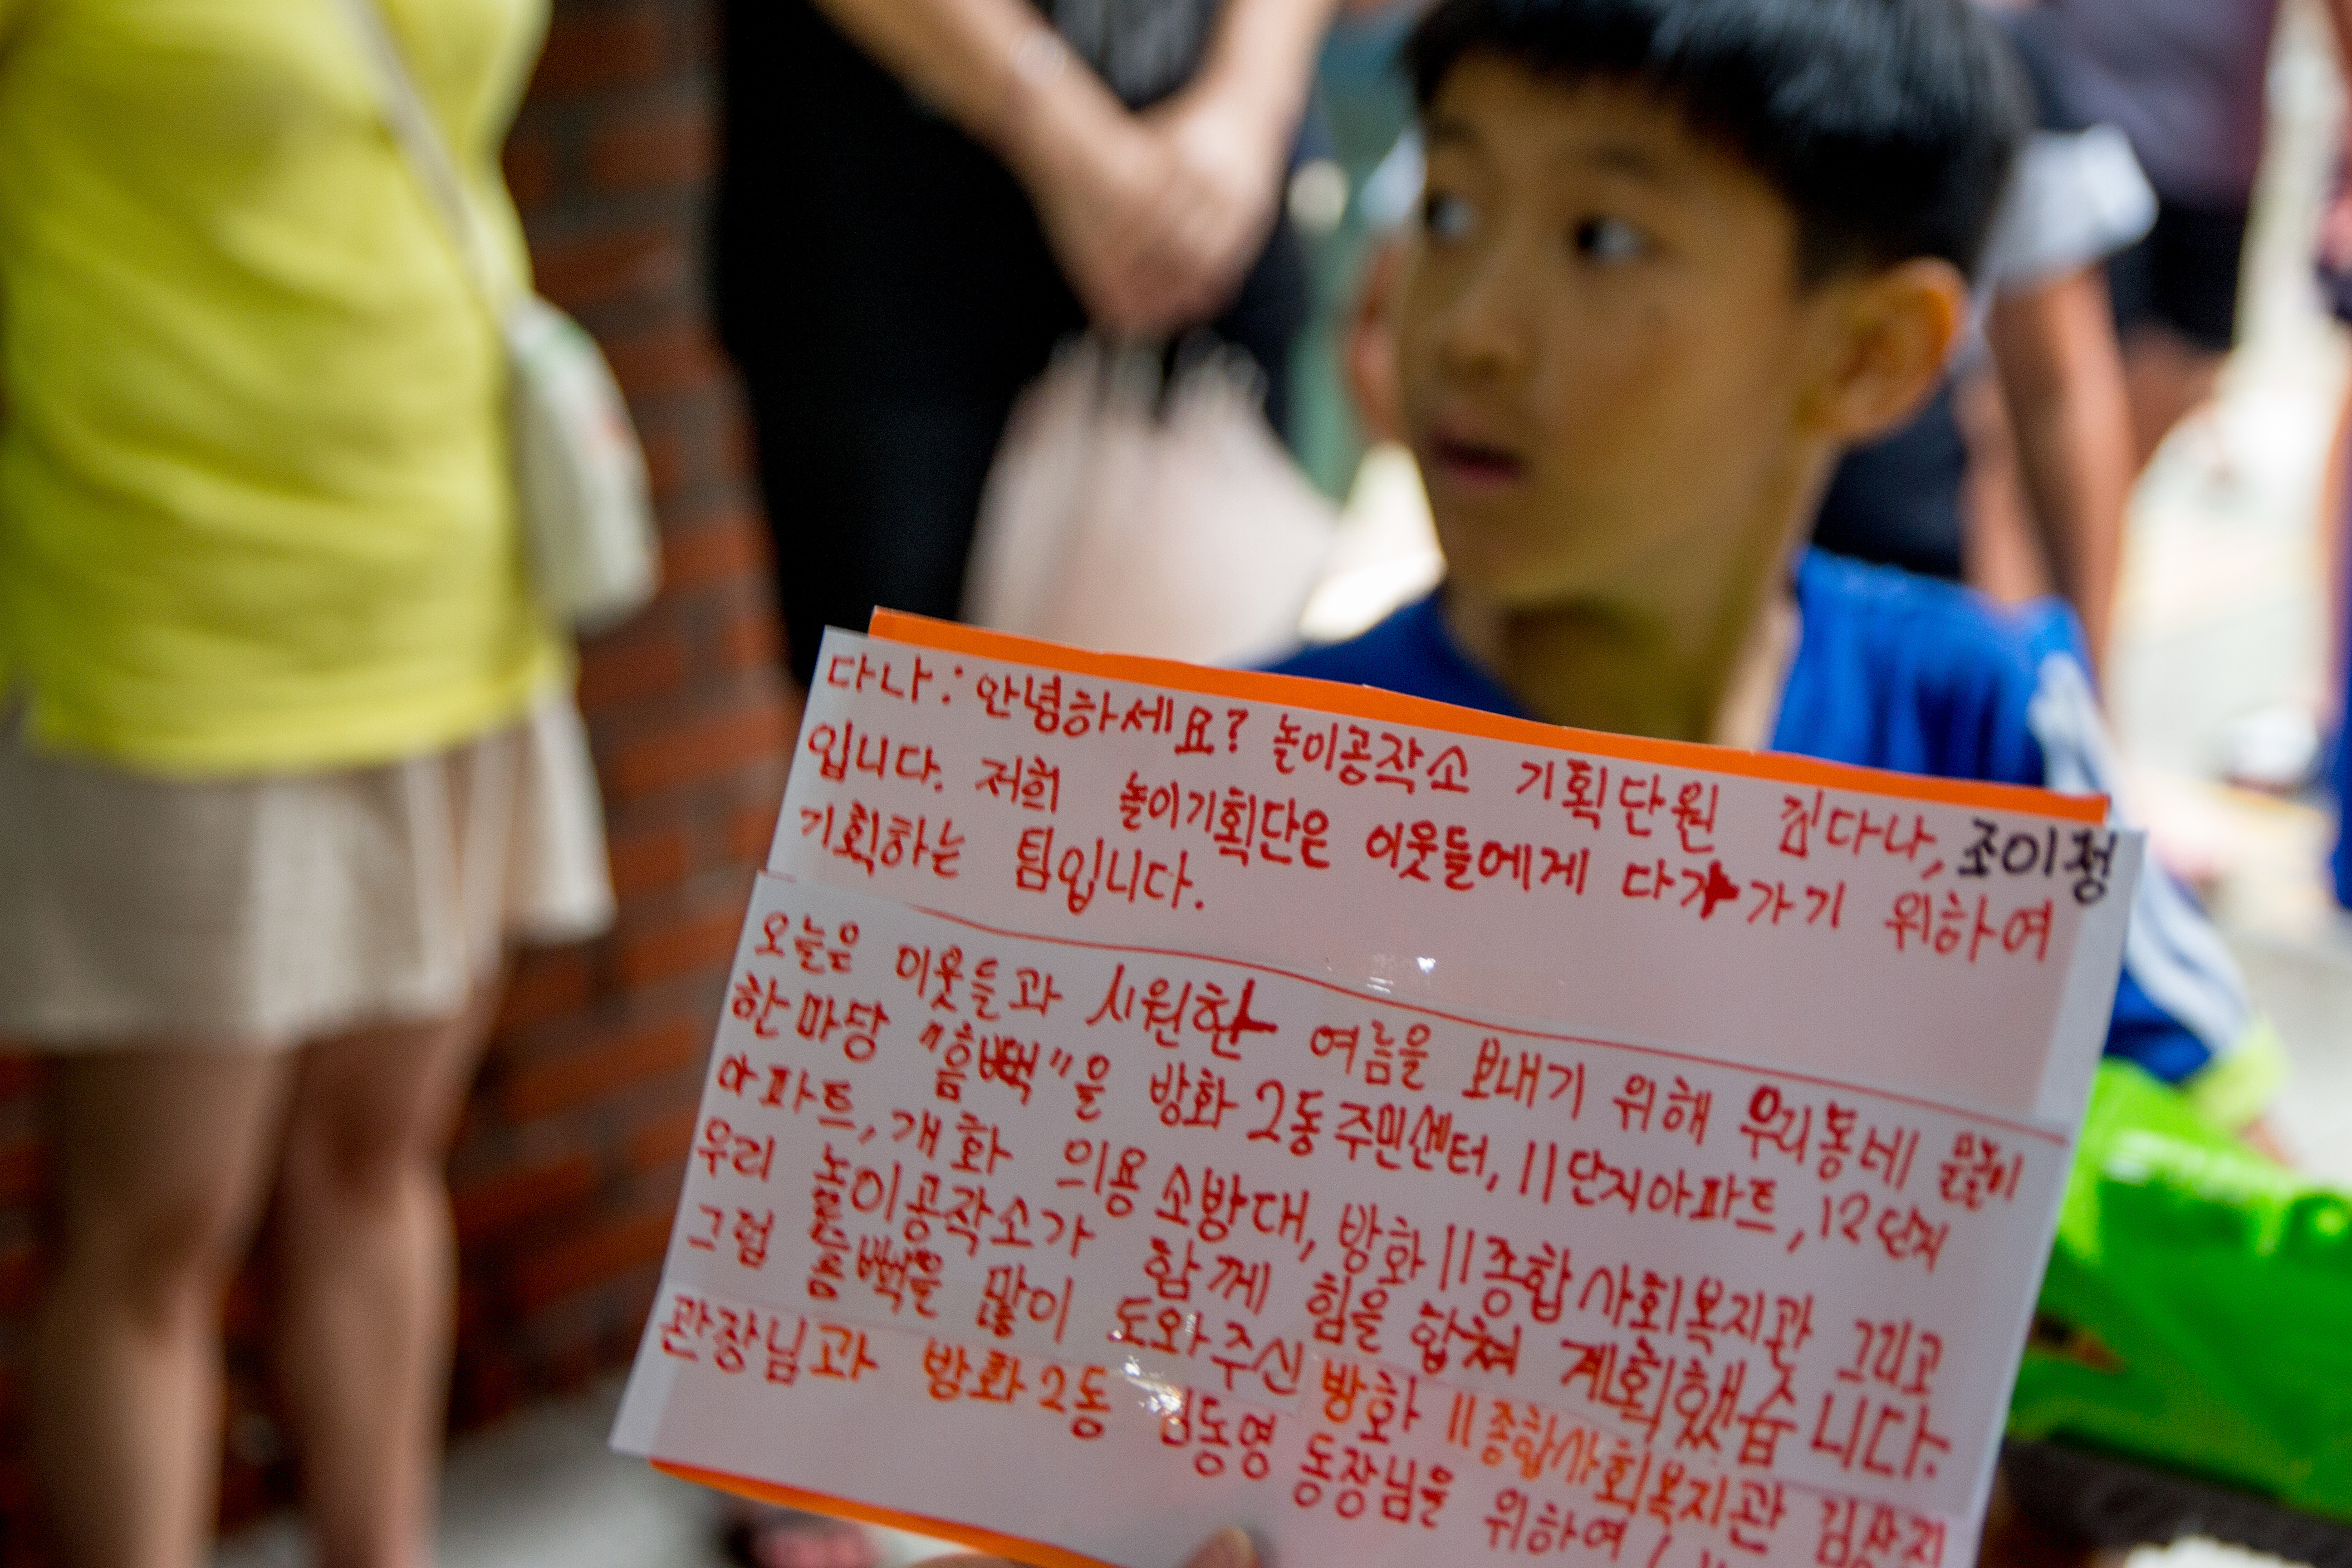 다나: 안녕하세요? 놀이공작소 기획단원 김다나, 조이정
입니다. 저희 놀이기획단은 이웃들에게 다가가기 위하여
기획하는 팀입니다.
오늘은 이웃들과 시원한 여름을 보내기 위해 우리동네 물놀이
한마당 "흠뻑"을 방화2동주민센터, 11단지아파트, 12단지
아파트, 개화 의용소방대, 방화11종합사회복지관 그리고
우리 놀이공작소가 함께 힘을 합쳐 계획했습니다.
그럼 흠뻑을 많이 도와주신 방화 11종합사회복지관
관장님과 방화2동 김동영 동장님을 위하여